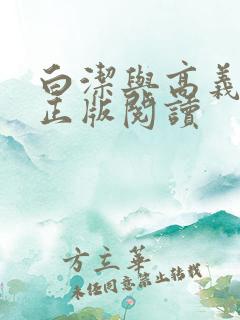 白潔與高義
正版閱讀
方立華
未經同意禁止转载